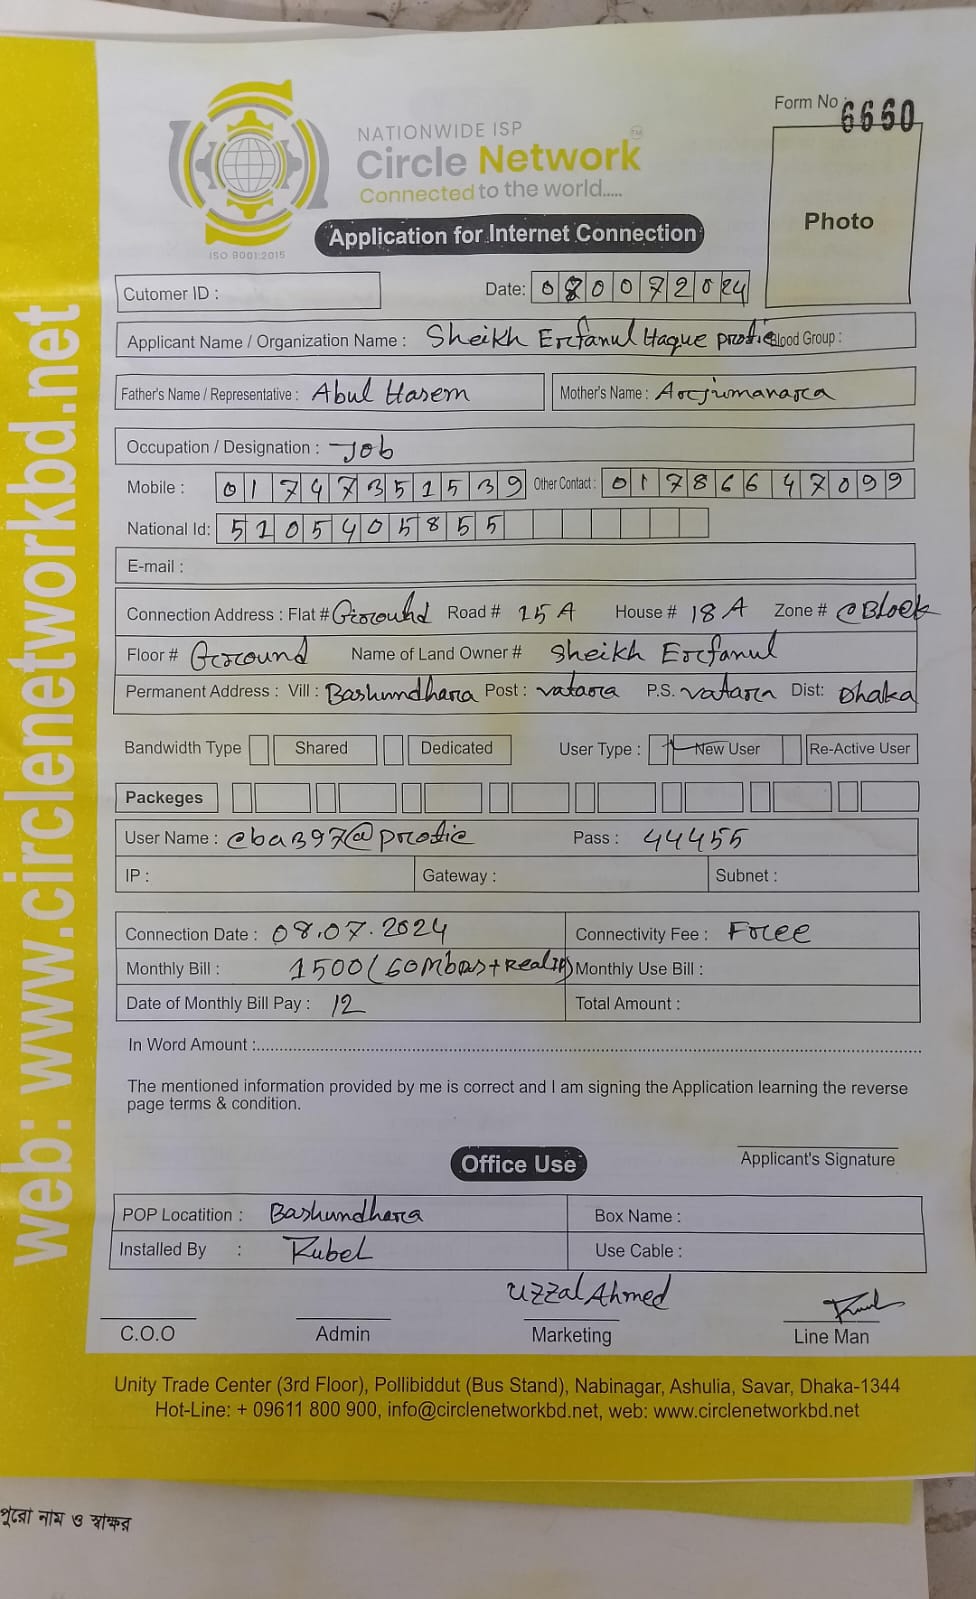 Form No : 6660
NATIONWIDE ISP
Circle Network TM
Connected to the world.....
ISO 9001:2015
Photo
Application for Internet Connection
Cutomer ID :
Date: 08 07 2024
Applicant Name / Organization Name : Sheikh Erfanul Haque protic Blood Group :
Father's Name / Representative : Abul Hasem Mother's Name : Arjumanara
Occupation / Designation : Job
Mobile : 01747351539 Other Contact : 01786647099
National Id: 5105405855
E-mail :
Connection Address : Flat # Ground Road # 15 A House # 18 A Zone # @Block
Floor # Ground Name of Land Owner # Sheikh Erfanul
Permanent Address : Vill : Bashundhara Post : vatara P.S. vatara Dist: Dhaka
Bandwidth Type Shared Dedicated User Type : New User Re-Active User
Packeges
User Name : cba397@protic Pass : 44455
IP : Gateway : Subnet :
Connection Date : 08.07.2024 Connectivity Fee : Free
Monthly Bill : 1500 (60Mbps+RealIP) Monthly Use Bill :
Date of Monthly Bill Pay : 12 Total Amount :
In Word Amount :
The mentioned information provided by me is correct and I am signing the Application learning the reverse
page terms & condition.
Applicant's Signature
Office Use
POP Locatition : Bashundhara Box Name :
Installed By : Rubel Use Cable :
Uzzal Ahmed
C.O.O Admin Marketing Line Man
Unity Trade Center (3rd Floor), Pollibiddut (Bus Stand), Nabinagar, Ashulia, Savar, Dhaka-1344
Hot-Line: + 09611 800 900, info@circlenetworkbd.net, web: www.circlenetworkbd.net
web: www.circlenetworkbd.net
পুরো নাম ও স্বাক্ষর